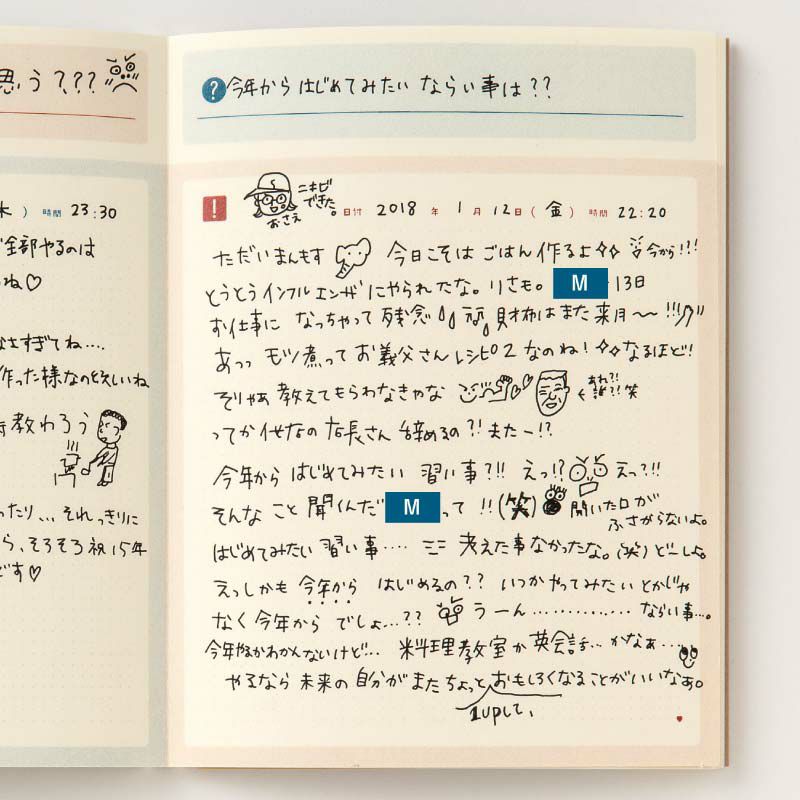 思う???
木) 時間 23:30
全部やるのは
ね♡
なさすぎてね....
作った様なの欲しいね
教わろう
ったり...それっきりに
ら、そろそろ祝15年
です♡
? 今年から はじめてみたい ならい事は??
! ニキビできた。 おさえ
日付 2018 年 1月 12日(金) 時間 22:20
ただいまんもす 今日こそは ごはん作るよ✧✧ 今から!!!
とうとうインフルエンザにやられたな。りさも。 M 13日
お仕事に なっちゃって 残念 財布はまた来月〜〜!!!
あっっ モツ煮って お義父さんレシピ2 なのね!✧✧なるほど!
そりゃあ 教えてもらわなきゃな あれ?! 誰?! 笑
ってか 店長さん 辞めるの?! またー!?
今年から はじめてみたい 習い事?!! えっ!? えっ?!!
そんな こと 聞くんだ M って !! (笑) 開いた口が
ふさがらないよ。
はじめてみたい 習い事.... 考えた事なかったな。(笑) どーしよ。
えっしかも 今年から はじめるの?? いつかやってみたい とかじゃ
なく 今年から でしょ...?? うーん............. ならい事...。
今年やるかわかんないけど... 料理教室か 英会話... かなぁ....
やるなら 未来の 自分が またちょっと おもしろくなる ことがいいなぁ。
1upして、